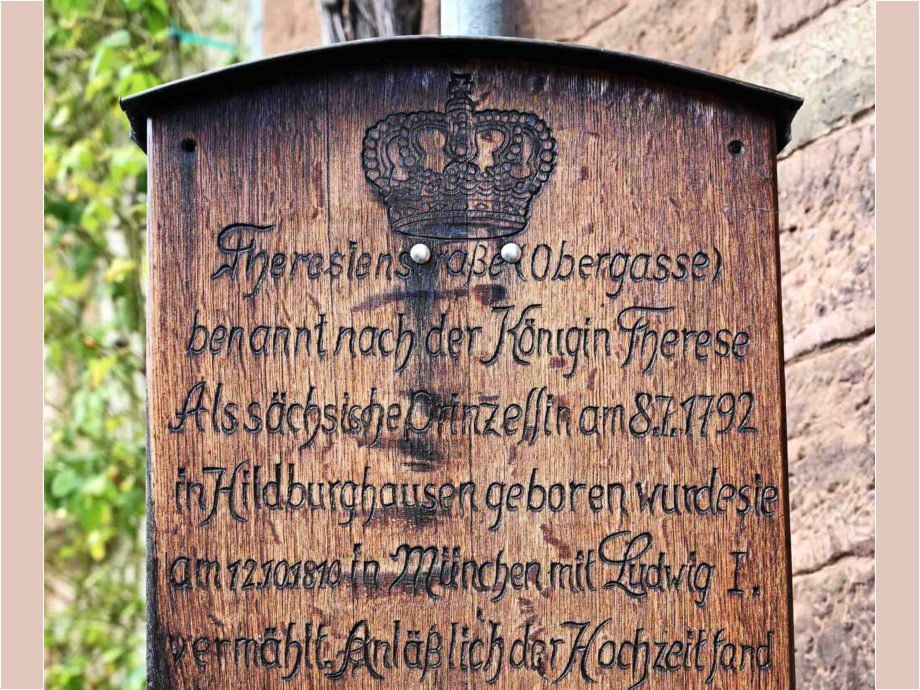 Theresienstraße (Obergasse)
benannt nach der Königin Therese
Als sächsische Prinzessin am 8.7.1792
in Hildburghausen geboren wurde sie
am 12.10.1810 in München mit Ludwig I.
vermählt. Anläßlich der Hochzeit fand